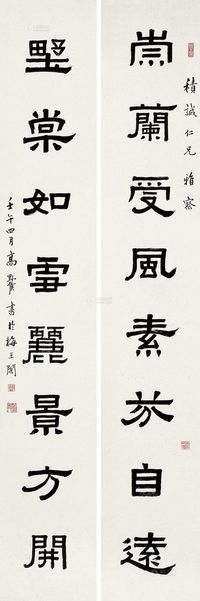 積誠仁兄 雅察
崇蘭受風素芬自遠
墅棠如雪麗景方開
壬午四月高野侯書於梅王閣